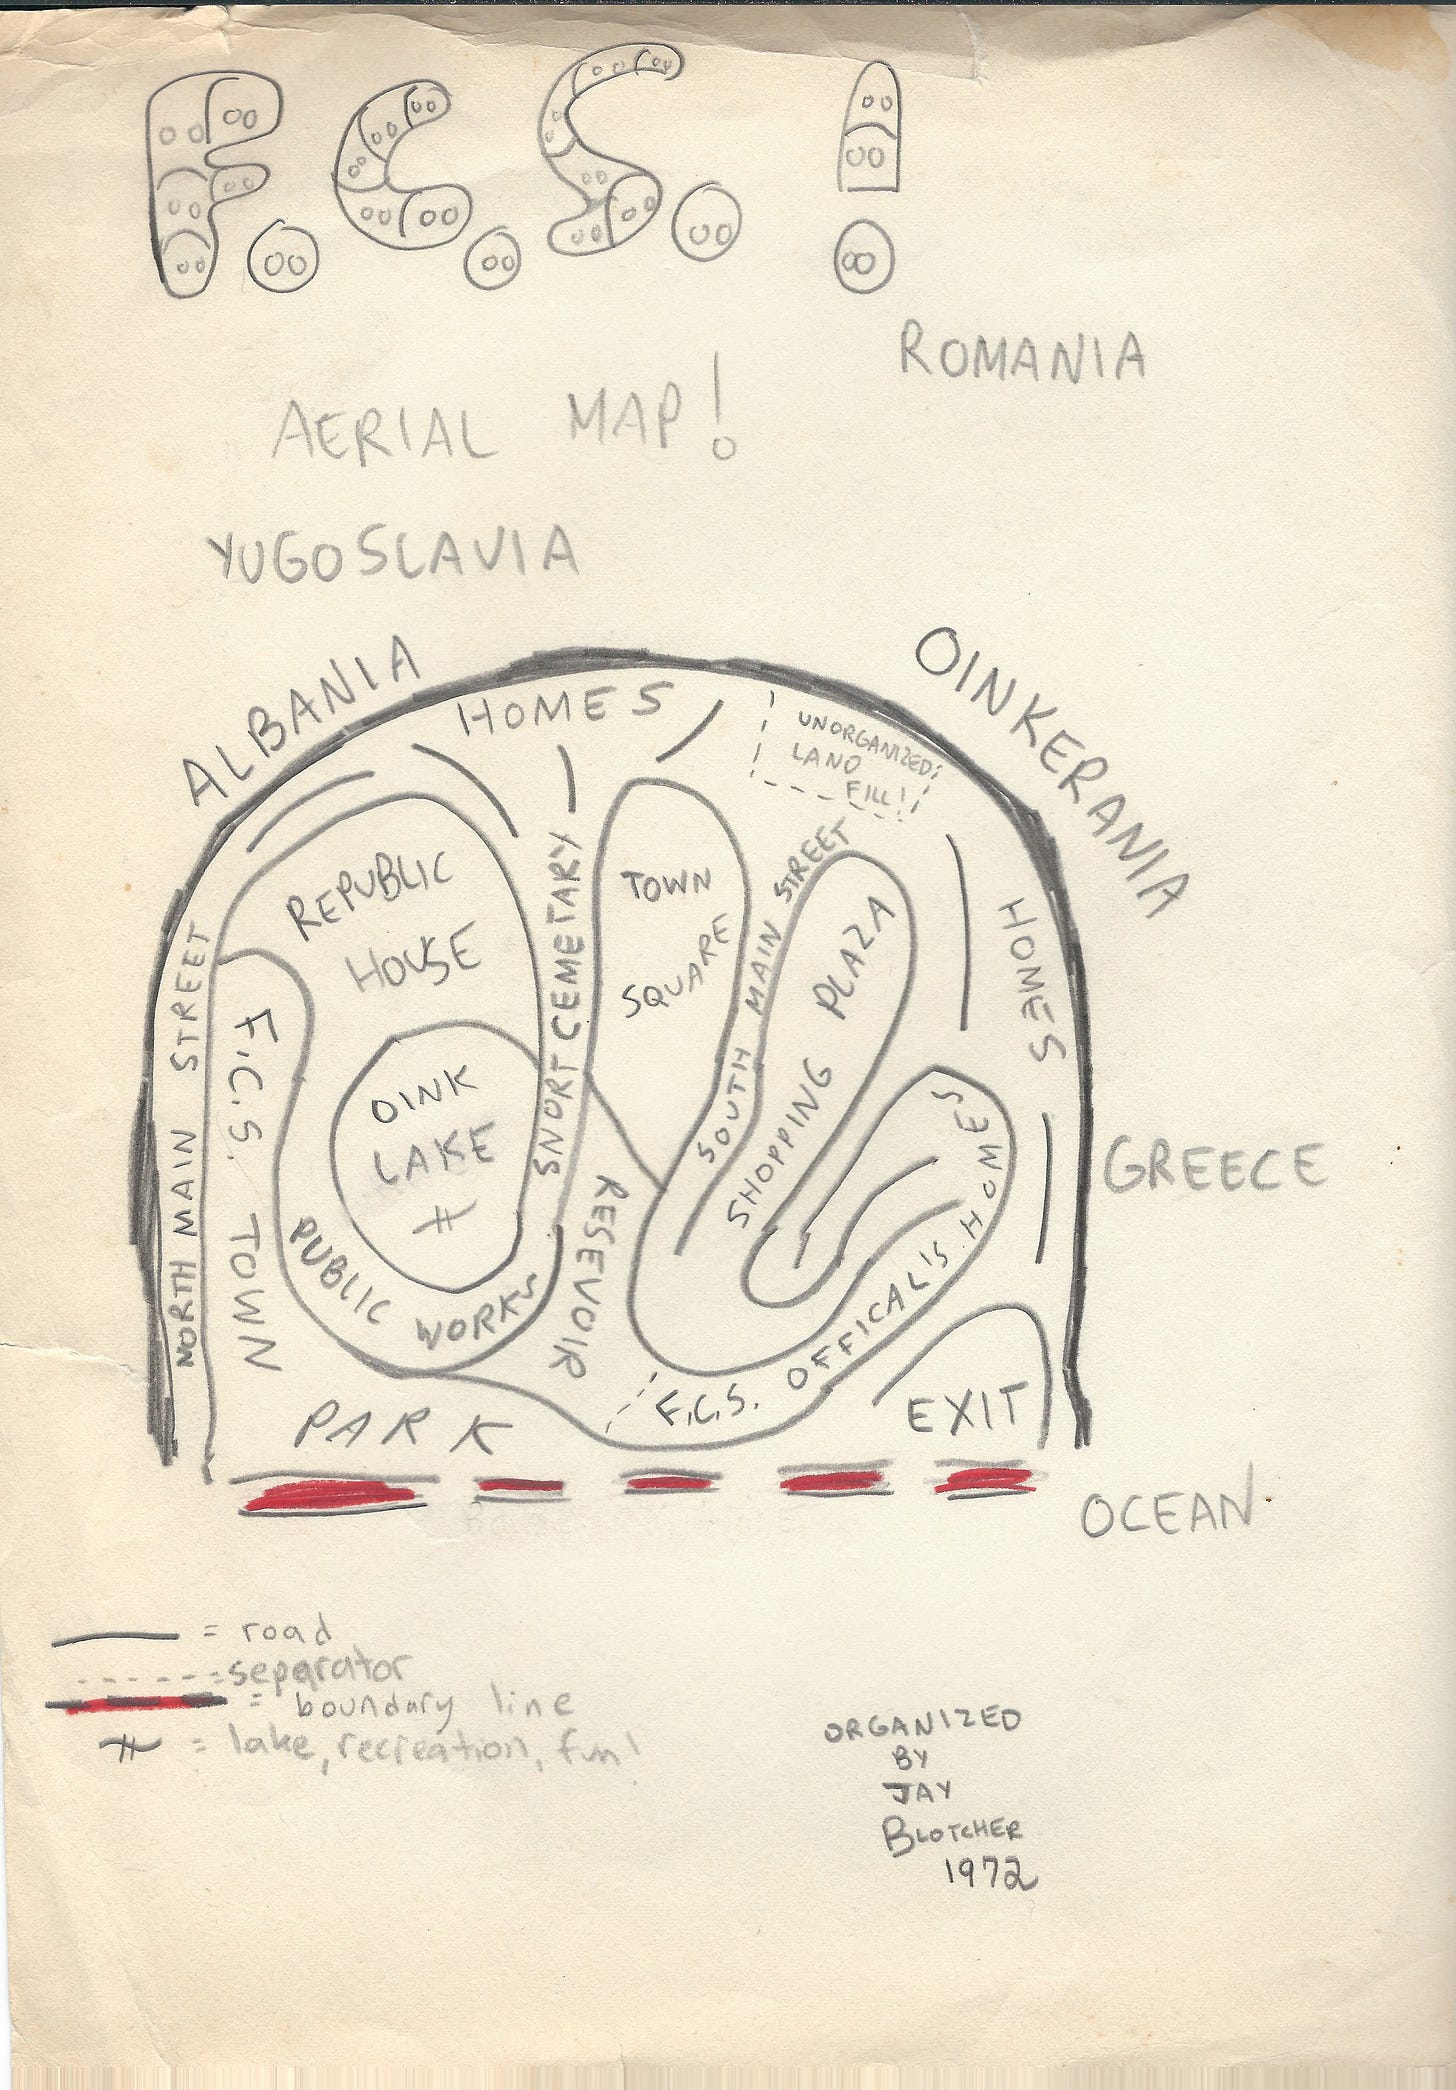 F.C.S.!
ROMANIA
AERIAL MAP!
YUGOSLAVIA
ALBANIA
OINKERANIA
HOMES
UNORGANIZED
LAND
FILL!
REPUBLIC
HOUSE
TOWN
SQUARE
SNORT CEMETARY
SOUTH MAIN STREET
SHOPPING PLAZA
HOMES
NORTH MAIN STREET
F.C.S. TOWN
OINK
LAKE
PUBLIC WORKS
RESEVOIR
GREECE
F.C.S. OFFICAL'S HOMES
PARK
EXIT
OCEAN
= road
= separator
= boundary line
= lake, recreation, fun!
ORGANIZED
BY
JAY
BLOTCHER
1972